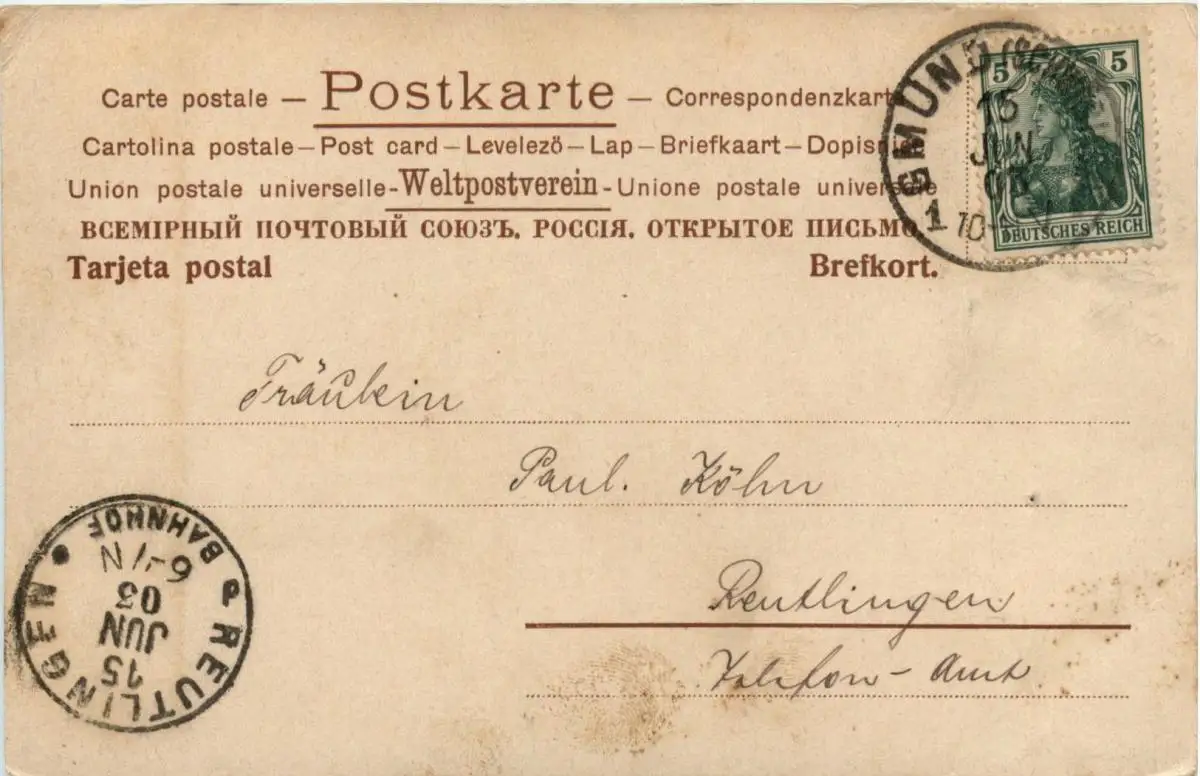 Carte postale — Postkarte — Correspondenzkart
Cartolina postale — Post card — Levelező — Lap — Briefkaart — Dopisnie
Union postale universelle - Weltpostverein - Unione postale universale
ВСЕМІРНЫЙ ПОЧТОВЫЙ СОЮЗЪ. РОССІЯ. ОТКРЫТОЕ ПИСЬМО.
Tarjeta postal Brefkort.
GMÜND
15
JUN
03
1 10-
5 5
DEUTSCHES REICH
Fräulein
Paul. Köhn
Reutlingen
Telefon-Amt.
REUTLINGEN
15
JUN
03
6-7 N
BAHNHOF